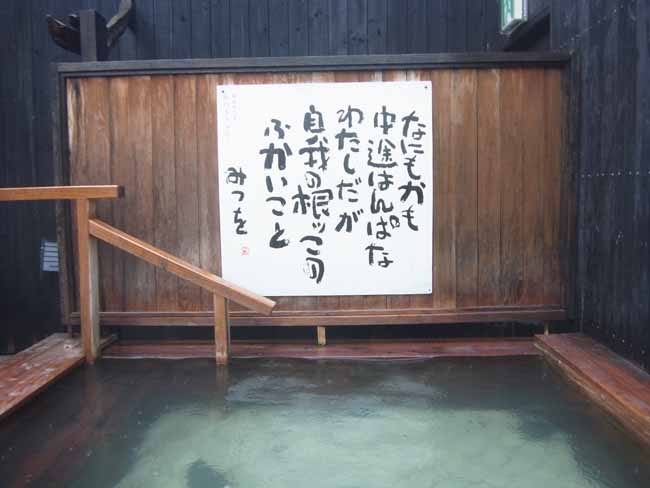 なにもかも
中途はんぱな
わたしだが
自我の根ッこの
ふかいこと
みつを